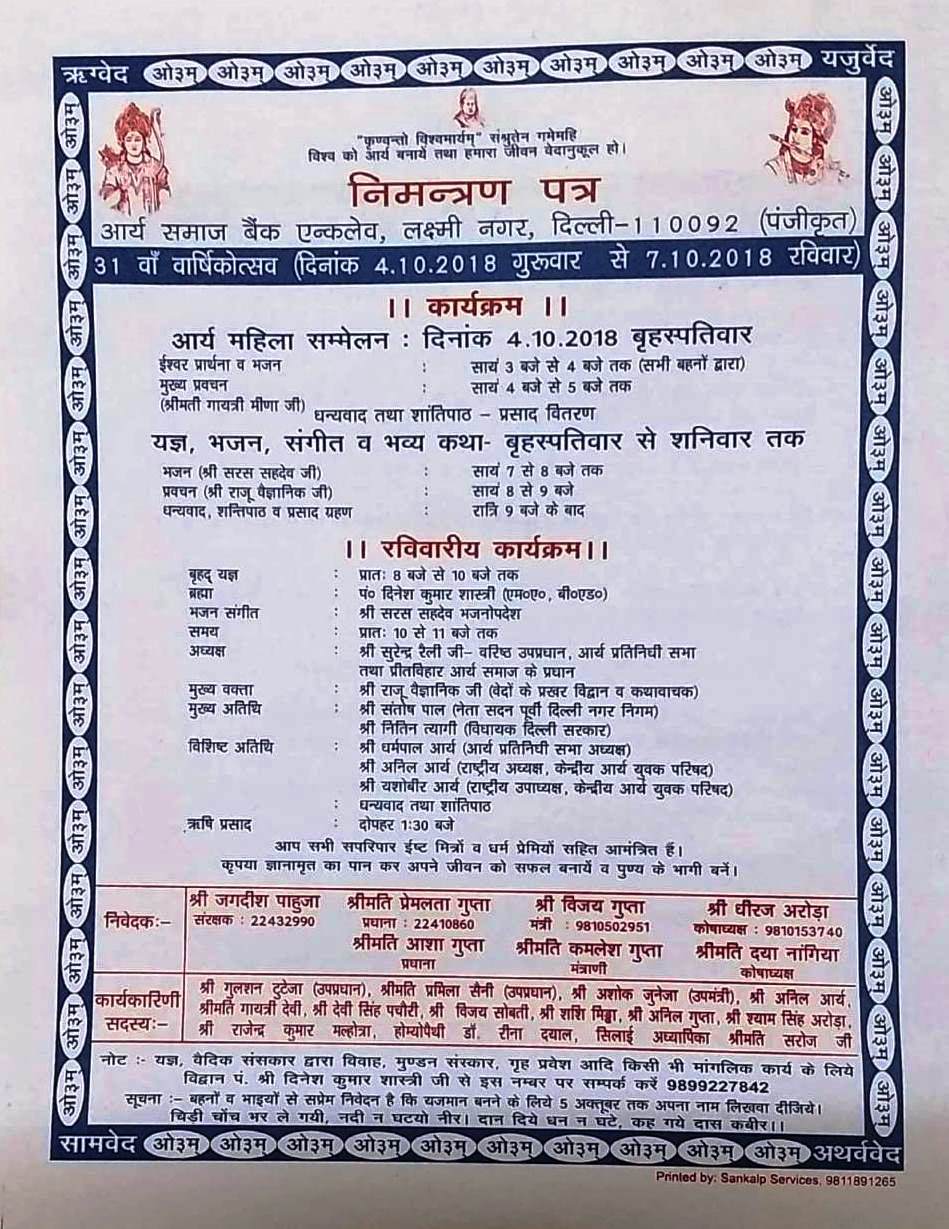 ऋग्वेद ओ३म् ओ३म् ओ३म् ओ३म् ओ३म् ओ३म् ओ३म् ओ३म् ओ३म् ओ३म् यजुर्वेद
"कृण्वन्तो विश्वमार्यम्" संश्रुतेन गमेमहि
विश्व को आर्य बनायें तथा हमारा जीवन वेदानुकूल हो।
निमन्त्रण पत्र
आर्य समाज बैंक एन्कलेव, लक्ष्मी नगर, दिल्ली-110092 (पंजीकृत)
31 वाँ वार्षिकोत्सव (दिनांक 4.10.2018 गुरूवार से 7.10.2018 रविवार)
।। कार्यक्रम ।।
आर्य महिला सम्मेलन : दिनांक 4.10.2018 बृहस्पतिवार
ईश्वर प्रार्थना व भजन : सायं 3 बजे से 4 बजे तक (सभी बहनों द्वारा)
मुख्य प्रवचन : सायं 4 बजे से 5 बजे तक
(श्रीमती गायत्री मीणा जी)
धन्यवाद तथा शांतिपाठ - प्रसाद वितरण
यज्ञ, भजन, संगीत व भव्य कथा- बृहस्पतिवार से शनिवार तक
भजन (श्री सरस सहदेव जी) : सायं 7 से 8 बजे तक
प्रवचन (श्री राजू वैज्ञानिक जी) : सायं 8 से 9 बजे
धन्यवाद, शन्तिपाठ व प्रसाद ग्रहण : रात्रि 9 बजे के बाद
।। रविवारीय कार्यक्रम।।
बृहद् यज्ञ : प्रातः 8 बजे से 10 बजे तक
ब्रह्मा : पं० दिनेश कुमार शास्त्री (एम०ए०, बी०एड०)
भजन संगीत : श्री सरस सहदेव भजनोपदेश
समय : प्रातः 10 से 11 बजे तक
अध्यक्ष : श्री सुरेन्द्र रैली जी- वरिष्ठ उपप्रधान, आर्य प्रतिनिधी सभा
तथा प्रीतविहार आर्य समाज के प्रधान
मुख्य वक्ता : श्री राजू वैज्ञानिक जी (वेदों के प्रखर विद्वान व कथावाचक)
मुख्य अतिथि : श्री संतोष पाल (नेता सदन पूर्वी दिल्ली नगर निगम)
श्री नितिन त्यागी (विधायक दिल्ली सरकार)
विशिष्ट अतिथि : श्री धर्मपाल आर्य (आर्य प्रतिनिधी सभा अध्यक्ष)
श्री अनिल आर्य (राष्ट्रीय अध्यक्ष, केन्द्रीय आर्य युवक परिषद)
श्री यशोबीर आर्य (राष्ट्रीय उपाध्यक्ष, केन्द्रीय आर्य युवक परिषद)
: धन्यवाद तथा शांतिपाठ
ऋषि प्रसाद : दोपहर 1:30 बजे
आप सभी सपरिपार ईष्ट मित्रों व धर्म प्रेमियों सहित आमंत्रित हैं।
कृपया ज्ञानामृत का पान कर अपने जीवन को सफल बनायें व पुण्य के भागी बनें।
निवेदकः-
श्री जगदीश पाहुजा श्रीमति प्रेमलता गुप्ता श्री विजय गुप्ता श्री धीरज अरोड़ा
संरक्षक : 22432990 प्रधाना : 22410860 मंत्री : 9810502951 कोषाध्यक्ष : 9810153740
श्रीमति आशा गुप्ता श्रीमति कमलेश गुप्ता श्रीमति दया नांगिया
प्रधाना मंत्राणी कोषाध्यक्ष
कार्यकारिणी सदस्यः-
श्री गुलशन टुटेजा (उपप्रधान), श्रीमति प्रमिला सैनी (उपप्रधान), श्री अशोक जुनेजा (उपमंत्री), श्री अनिल आर्य,
श्रीमति गायत्री देवी, श्री देवी सिंह पचौरी, श्री विजय सोबती, श्री शशि मिड्ढा, श्री अनिल गुप्ता, श्री श्याम सिंह अरोड़ा,
श्री राजेन्द्र कुमार मल्होत्रा, होम्योपैथी डॉ. रीना दयाल, सिलाई अध्यापिका श्रीमति सरोज जी
नोट :- यज्ञ, वैदिक संसकार द्वारा विवाह, मुण्डन संस्कार, गृह प्रवेश आदि किसी भी मांगलिक कार्य के लिये
विद्वान पं. श्री दिनेश कुमार शास्त्री जी से इस नम्बर पर सम्पर्क करें 9899227842
सूचना :- बहनों व भाइयों से सप्रेम निवेदन है कि यजमान बनने के लिये 5 अक्तूबर तक अपना नाम लिखवा दीजिये।
चिड़ी चोंच भर ले गयी, नदी न घटयो नीर। दान दिये धन न घटे, कह गये दास कबीर।।
सामवेद ओ३म् ओ३म् ओ३म् ओ३म् ओ३म् ओ३म् ओ३म् ओ३म् ओ३म् ओ३म् अथर्ववेद
Printed by: Sankalp Services, 9811891265